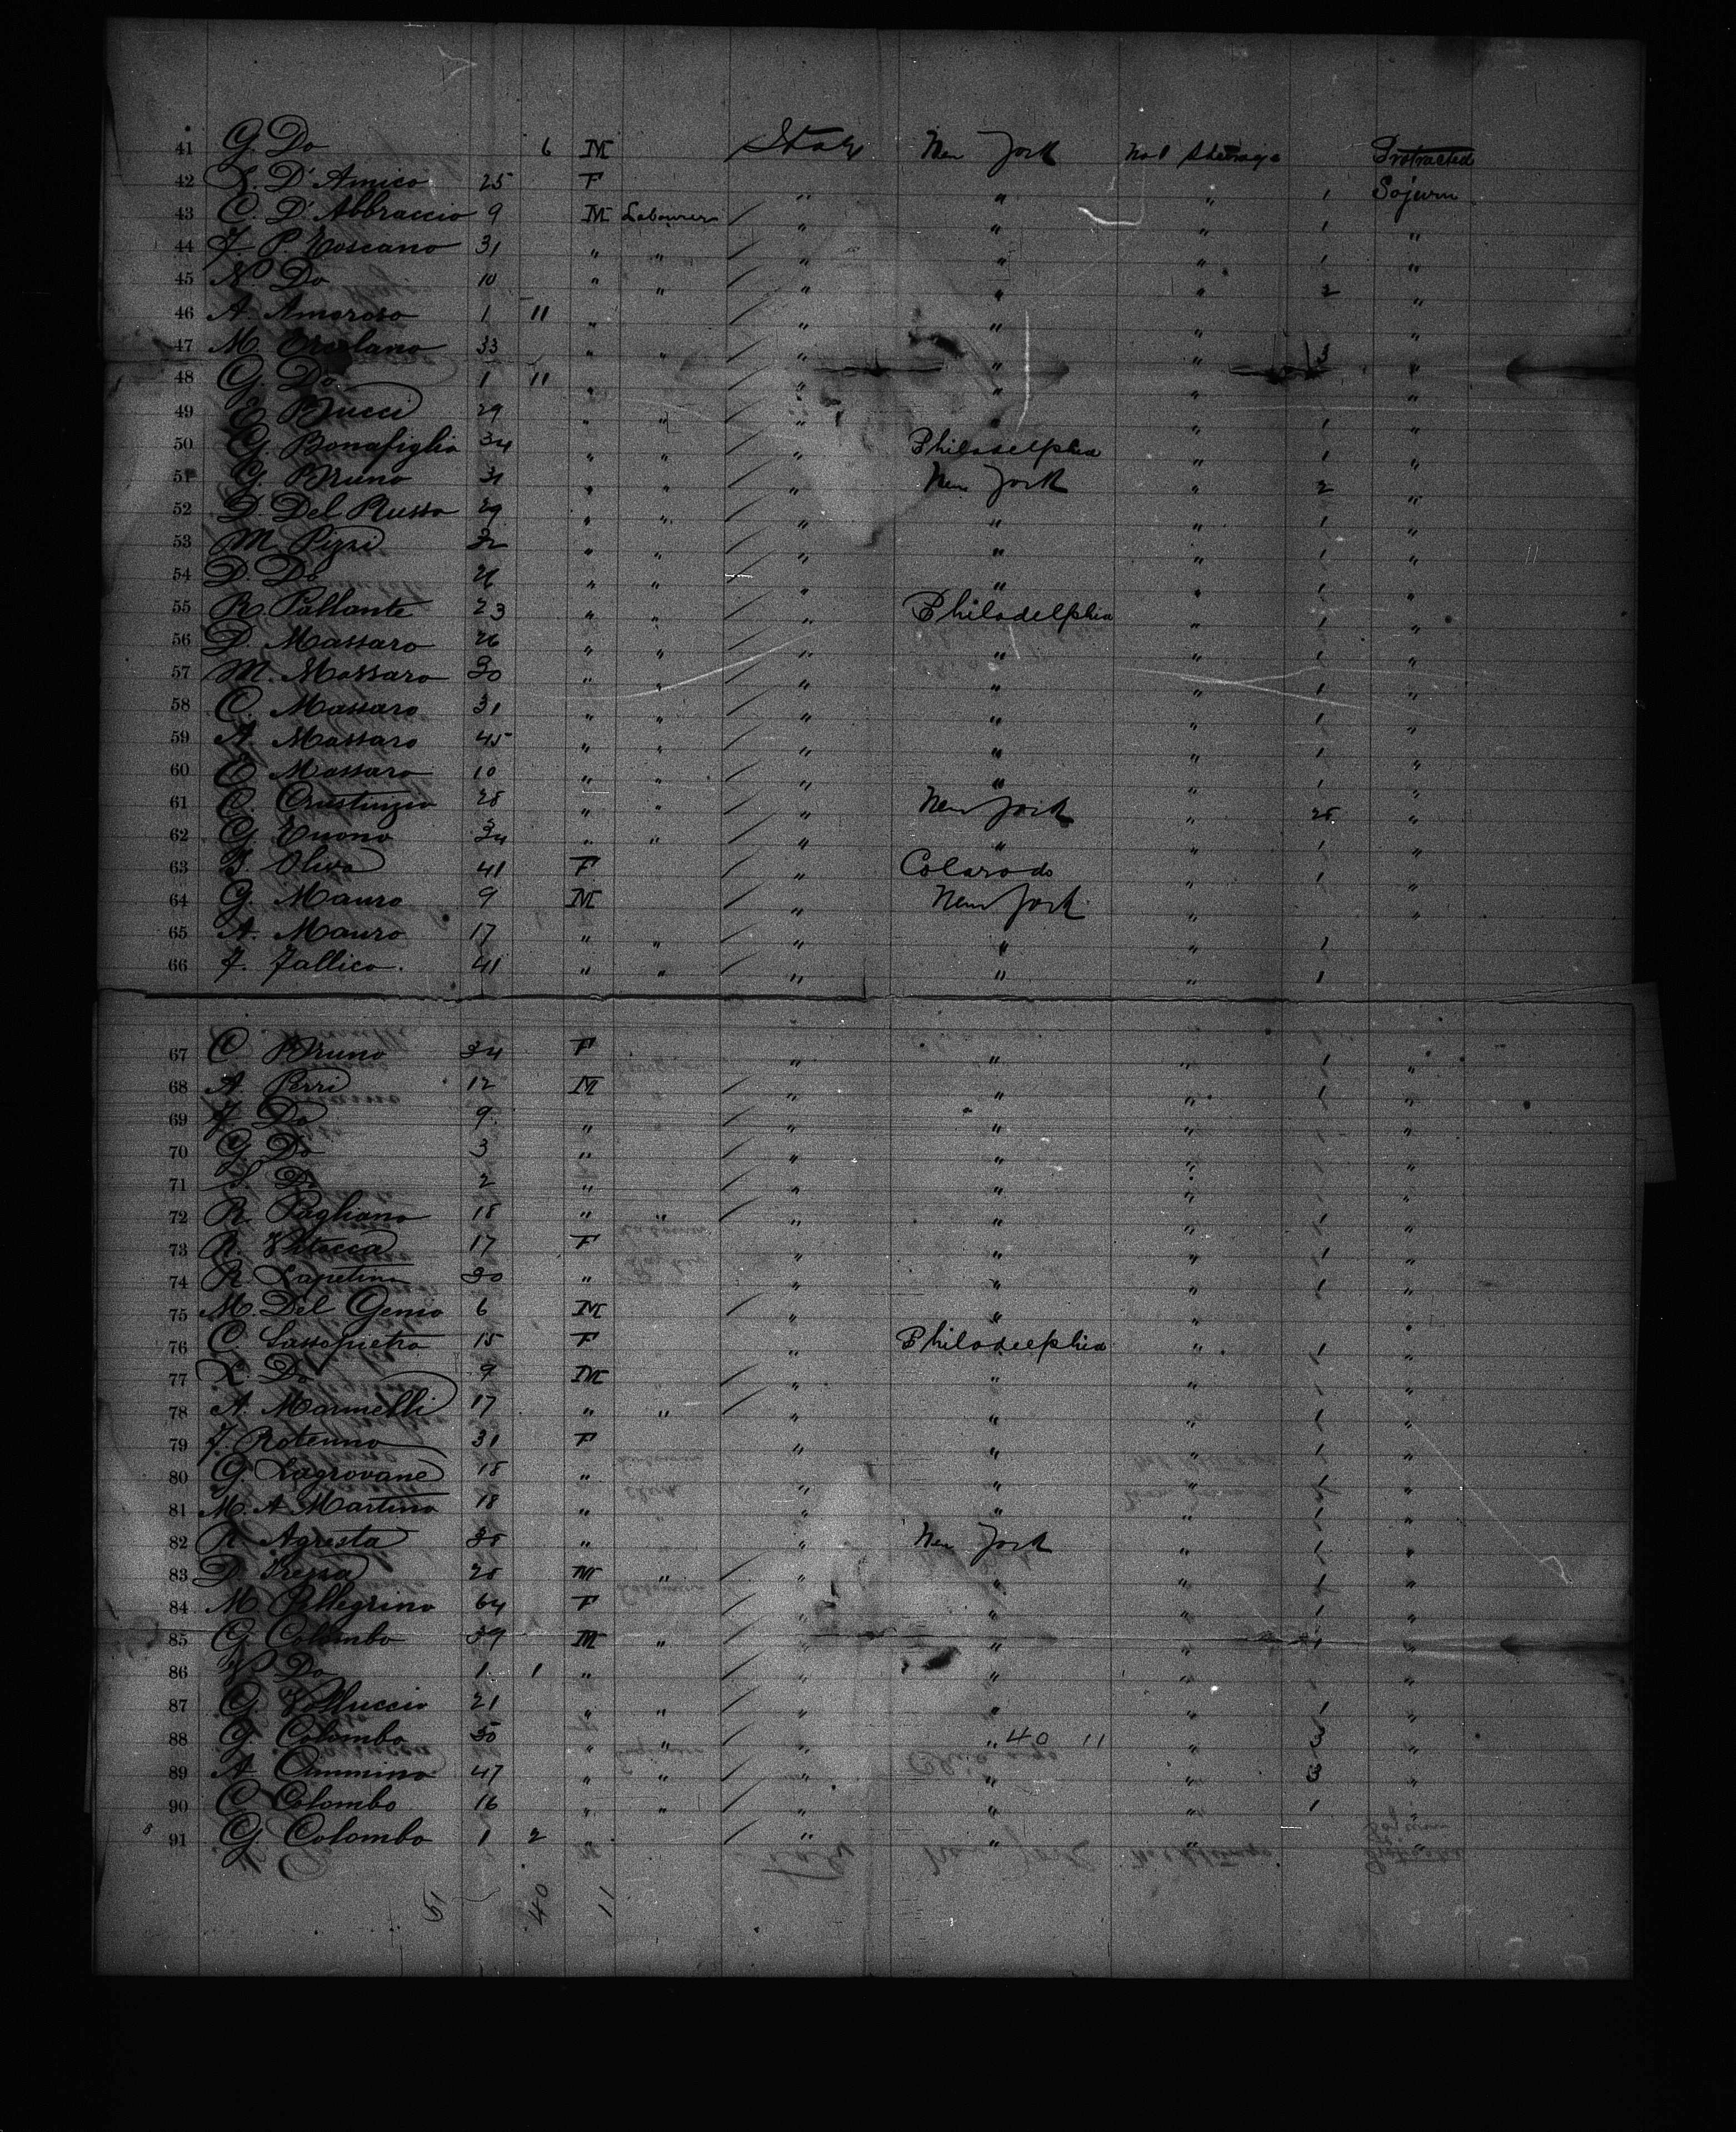 41 G. Do 6 M Italy New York No 1 Steerage Protracted
42 L. D'Amico 25 F " " " 1 Sojurn
43 C. D'Abbraccio 9 M Labourer / " " " 1 "
44 F. P. Toscano 31 " " / " " " 1 "
45 N. Do 10 " " / " " " 2 "
46 A. Amoroso 1 11 " / " " "
47 M. 33 " " / " " " 3 "
48 G. Do 1 11 " / " " " "
49 E. Bucci 29 " " / " " " 1 "
50 G. Bonafiglio 34 " " / " Philadelphia " 1 "
51 G. Bruno 31 " " / " New York " 2 "
52 D. Del Russo 29 " " / " " " 1 "
53 M. Pizzi 32 " " / " " " 1 "
54 D. Do 26 " " / " " " 1 "
55 R. Pallante 23 " " / " Philadelphia " 1 "
56 D. Massaro 26 " " / " " " 1 "
57 M. Massaro 30 " " / " " " 1 "
58 C. Massaro 31 " " / " " " 1 "
59 A. Massaro 45 " " / " " " 1 "
60 E. Massaro 10 " " / " " " 1 "
61 C. 28 " " / " New York " "
62 G. Tuono 34 " " / " " " 1 "
63 Oliva 41 F " Colorado " 1 "
64 G. Mauro 9 M / " New York " "
65 A. Mauro 17 " " / " " " 1
66 F. Fallico. 41 " " / " " " 1
67 C. Bruno 34 F " " " 1 "
68 A. Perri 12 M / " " " 1 "
69 F. Do 9 " / " " " "
70 G. Do 3 " / " " " "
71 Do 2 " / " " " "
72 R. Pagliano 18 " " / " " " 1 "
73 R. 17 F " " " 1 "
74 R. Lapetina 30 " " " " 1 "
75 M. Del Genio 6 M / " " " "
76 C. Sassopietro 15 F " Philadelphia " 1 "
77 L. Do 9 M / " " " "
78 A. Marinelli 17 " " / " " " 1 "
79 F. Rotunno 31 F " " " 1 "
80 G. Lagrovane 18 " " " " 1 "
81 M. A. Martino 18 " " " " 1 "
82 R. Agresta 38 " " New York " 1 "
83 D. 28 M " / " " " 1 "
84 M. Pellegrino 64 F " " " 1 "
85 G. Colombo 39 M " / " " " 1 "
86 Do 1 1 " / " " " "
87 G. 21 " " / " " " 1 "
88 G. Colombo 50 " " / " " 40 11 " 3 "
89 A. Cimmino 47 " " / " " " 3 "
90 C. Colombo 16 " " / " " " 1 "
91 G. Colombo 1 2 " / " " " "
51 40 11